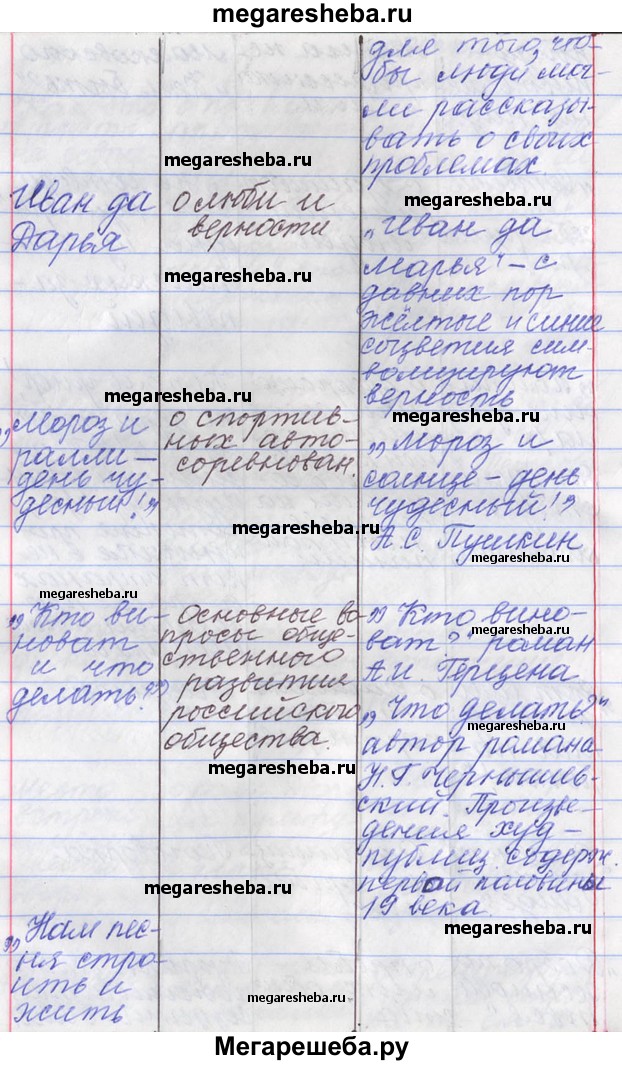 megaresheba.ru
для того, что-
бы люди мог-
ли рассказы-
вать о своих
проблемах.
megaresheba.ru
megaresheba.ru
Иван да
Дарья
о люби и
верности
megaresheba.ru
„Иван да
Марья" – с
давних пор
жёлтые и синие
соцветия сим-
волизируют
верность
megaresheba.ru
megaresheba.ru
„Мороз и
ралли –
день чу-
десный!"
о спортив-
ных авто-
соревнован.
„Мороз и
солнце – день
чудесный!"
А.С. Пушкин
megaresheba.ru
megaresheba.ru
megaresheba.ru
„Кто ви-
новат
и что
делать?"
Основные во
просы обще-
ственного
развития
российского
общества.
megaresheba.ru
„Кто вино-
ват?" роман
megaresheba.ru
А.И. Герцена
„Что делать?"
megaresheba.ru
автор романа
Н.Г. Чернышев-
ский. Произве-
дения худ –
публиц. содерж.
первой половины
19 века.
megaresheba.ru
megaresheba.ru
„Нам пес-
ня стро-
ить и
жить
megaresheba.ru
megaresheba.ru
Мегарешеба.ру